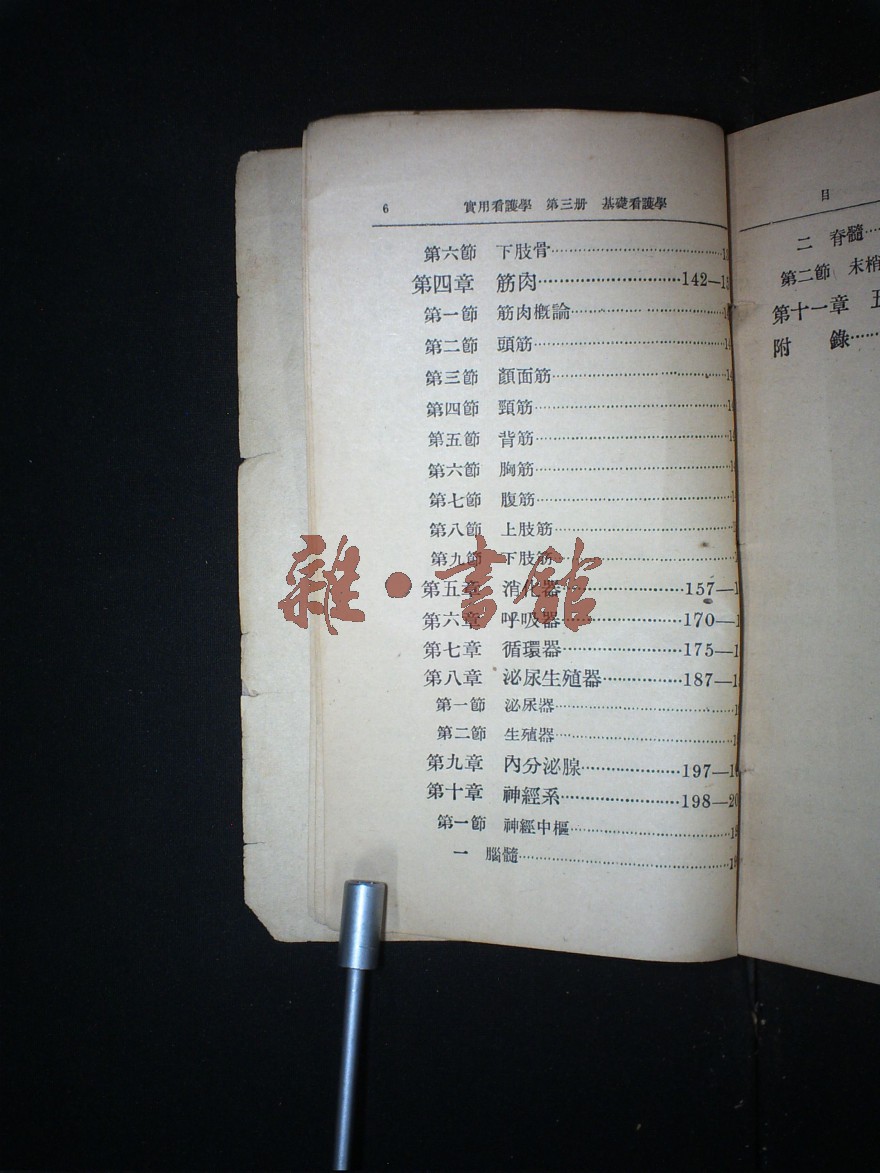 6 實用看護學 第三册 基礎看護學
第六節 下肢骨
第四章 筋肉 142—1
第一節 筋肉概論
第二節 頭筋
第三節 顏面筋
第四節 頸筋
第五節 背筋
第六節 胸筋
第七節 腹筋
第八節 上肢筋
第九節 下肢筋
第五章 消化器 157—1
第六章 呼吸器 170—1
第七章 循環器 175—1
第八章 泌尿生殖器 187—1
第一節 泌尿器
第二節 生殖器
第九章 內分泌腺 197—1
第十章 神經系 198—20
第一節 神經中樞
一 腦髓
目
二 脊髓
第二節 末梢
第十一章 五
附 錄
雜·書館